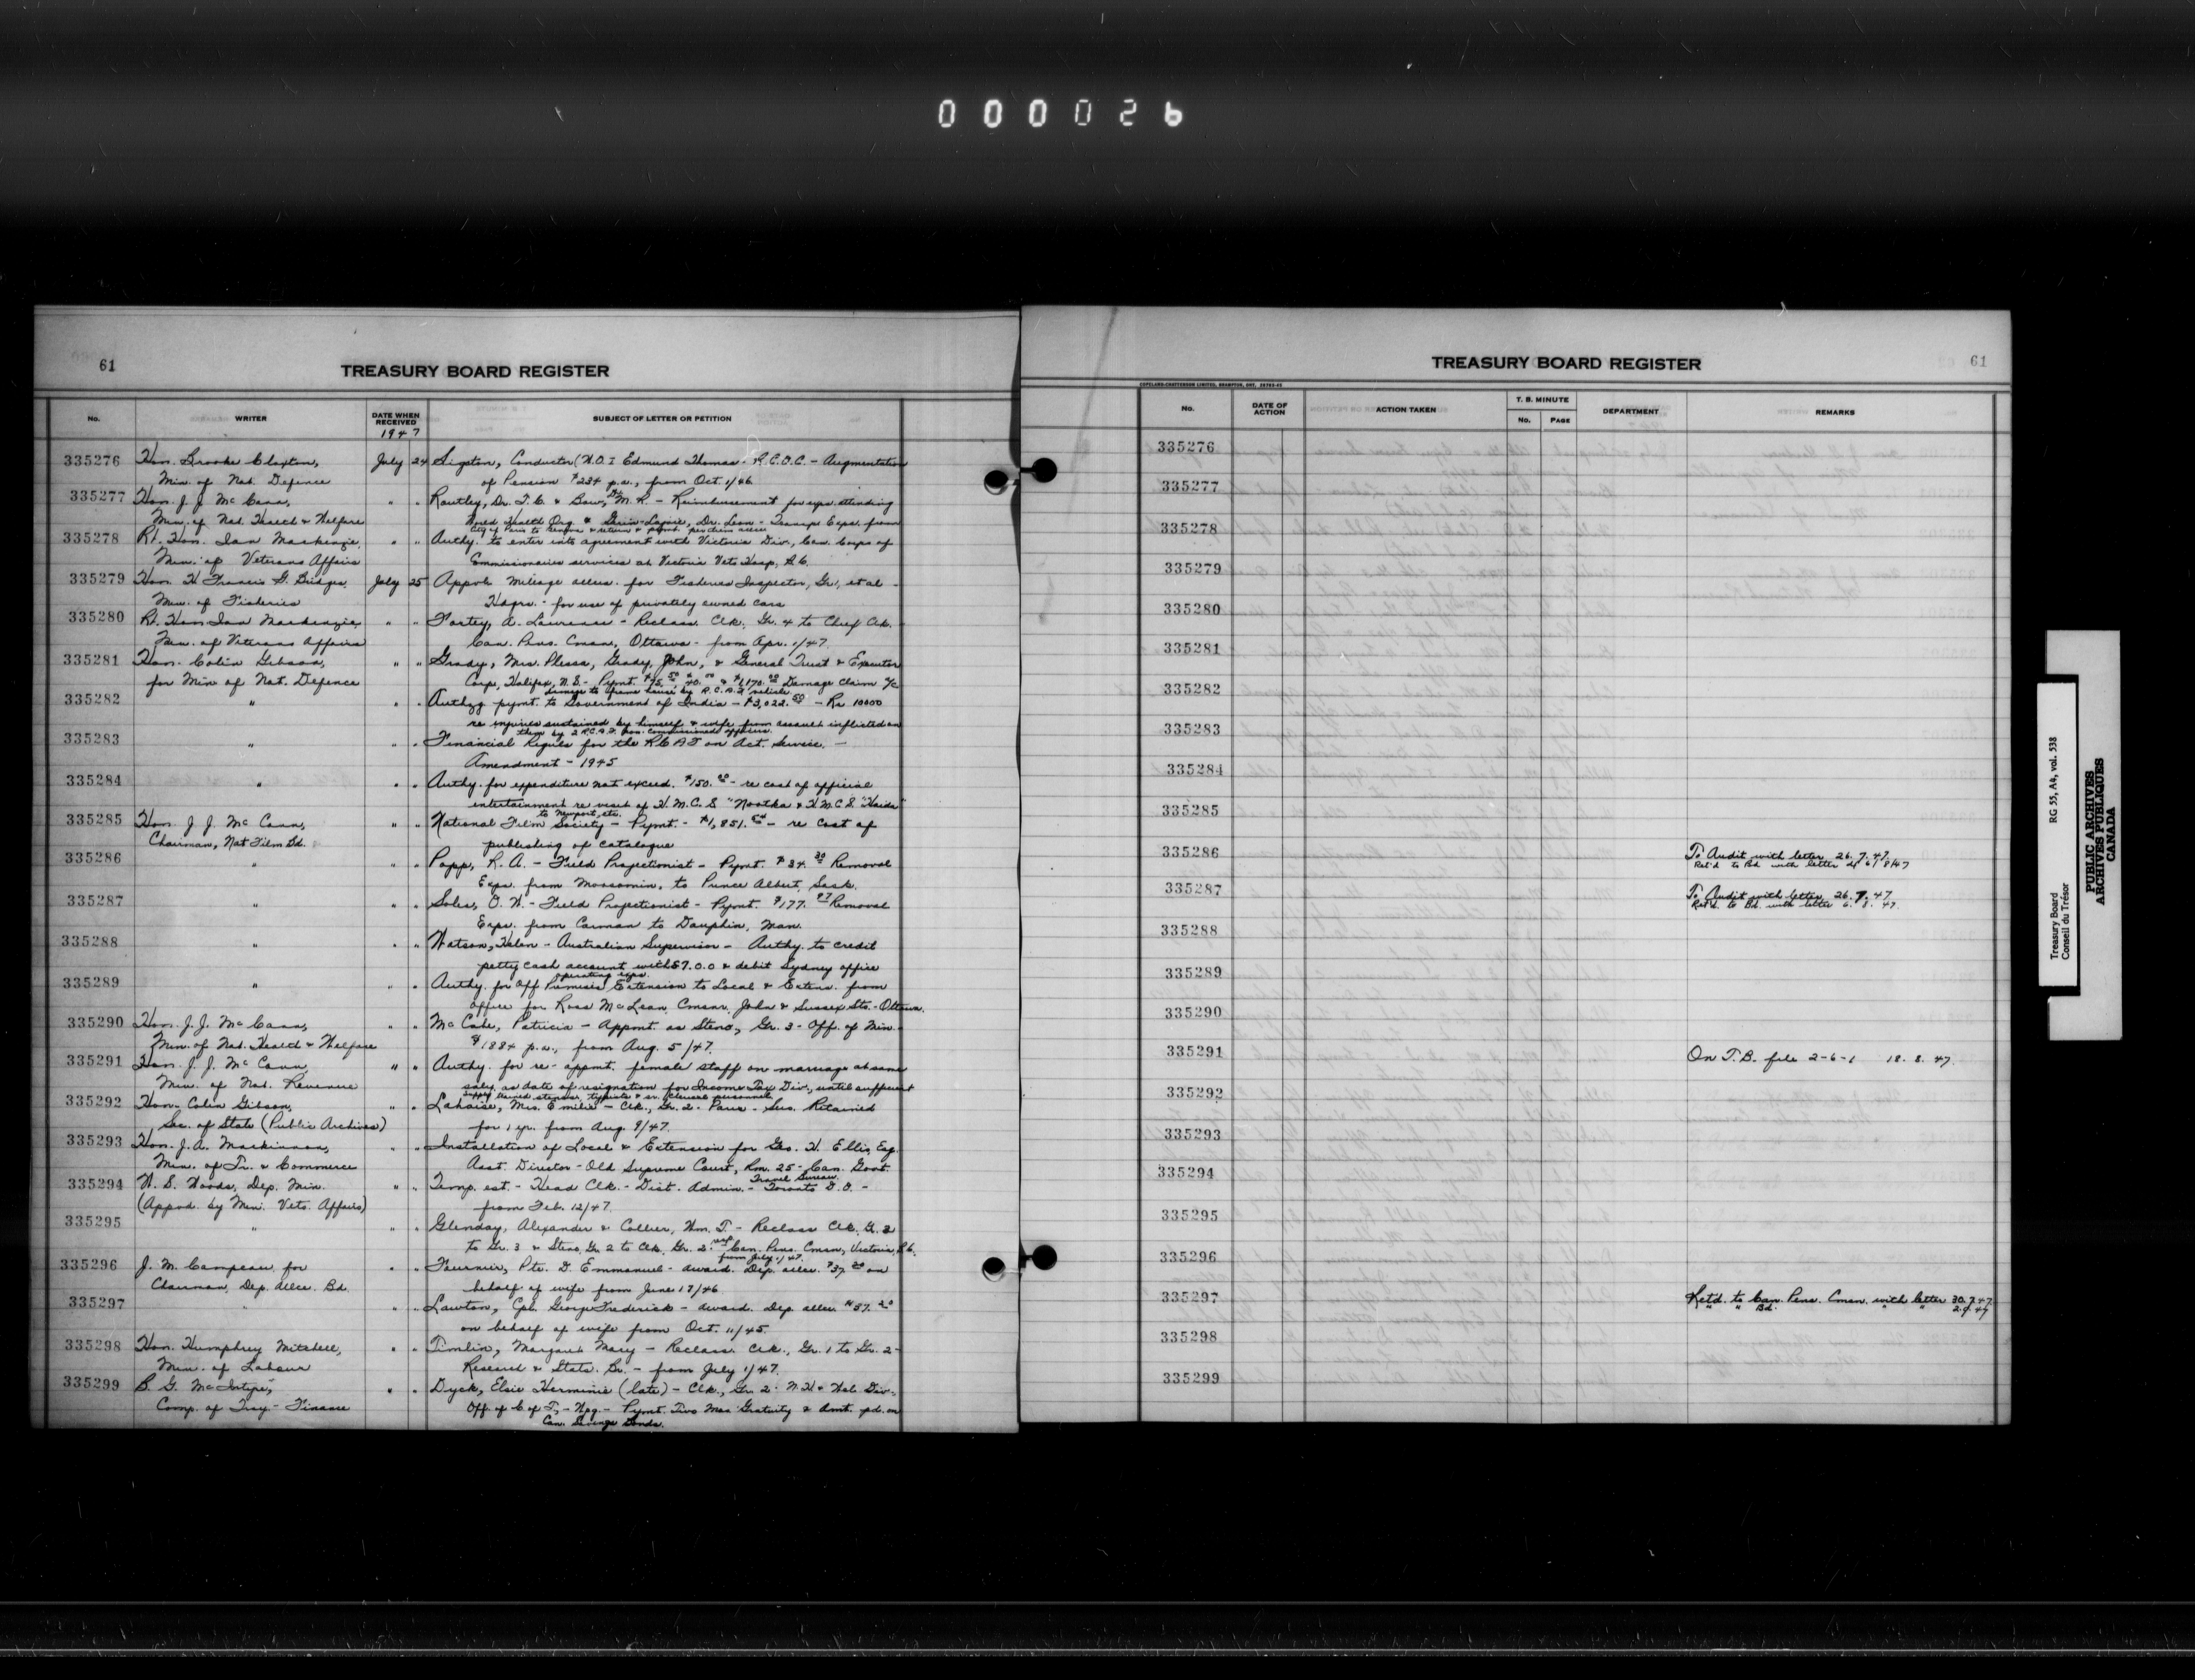 000026
61
TREASURY BOARD REGISTER
No. WRITER DATE WHEN RECEIVED SUBJECT OF LETTER OR PETITION
1947
335276 Hon. Brooke Claxton, July 24 Sigston, Conductor (W.O.I Edmund Thomas - R.C.O.C. - Augmentation
Min. of Nat. Defence of Pension $234 p.a., from Oct. 1/46
335277 Hon. J. J. McCann, " " Routley, Dr. T. C. & Bow, Dr. M. R. - Reimbursement for exps. attending
Min. of Nat. Health & Welfare World Health Org. & Lapire, Dr. Leon - Transp. Exps. from
City of Paris to Geneva & return & paymt. per diem allces
335278 Rt. Hon. Ian Mackenzie, " " Authy. to enter into agreement with Victoria Div., Can. Corps of
Min. of Veterans Affairs Commissionaires services at Victoria Vets Hosp, B.C.
335279 Hon. H Francis G. Bridges, July 25 Approve mileage allce. for Fisheries Inspector, Gr. 1, et al -
Min. of Fisheries Hdqrs. - for use of privately owned cars
335280 Rt. Hon. Ian Mackenzie, " " Fortey, A. Lawrence - Reclass. Clk. Gr. 4 to Chief Clk.
Min. of Veterans Affairs Can. Pens. Cmsn, Ottawa - from Apr. 1/47.
335281 Hon. Colin Gibson, " " Grady, Mrs. Plessa, Grady, John, & General Trust & Executor
for Min of Nat. Defence Corp, Halifax, N.S. - Pymt. $75.50 $40.00 & $1,170.00 Damage claim a/c
damage to frame house by R.C.A.F. vehicle
335282 " " " Authzg pymt. to Government of India - $3,022.50 - Rs 10000
re injuries sustained by himself & wife from assault inflicted on
them by 2 R.C.A.F. non-commissioned officers.
335283 " " " Financial Regules for the RCAF on Act. Service. -
Amendment - 1945
335284 " " " Authy. for expenditure not exceed. $150.00 - re cost of official
entertainment re visit of H.M.C.S "Nootka & H.M.C.S. "Haida"
to Newport, etc.
335285 Hon. J. J. McCann, " " National Film Society - Pymt. - $1,851.64 - re Cost of
Chairman, Nat Film Bd. publishing of catalogue
335286 " " " Popp, R. A. - Field Projectionist - Pymt. $34.30 Removal
Exps. from Moosomin, to Prince Albert, Sask.
335287 " " " Soles, O. W. - Field Projectionist - Pymt. $177.97 Removal
Exps. from Carman to Dauphin, Man.
335288 " " " Watson, Helen - Australian Supervisor - Authy. to credit
petty cash account with £7.0.0 & debit Sydney office
operating exps.
335289 " " " Authy. for Off Premises Extension to Local & Extens. from
office for Ross McLean, Cmsnr. John & Sussex Sts. - Ottawa.
335290 Hon. J. J. McCann, " " McCabe, Patricia - Appmt. as Steno, Gr. 3 - Off. of Min.
Min. of Nat. Health & Welfare $1884 p.a., from Aug. 5/47.
335291 Hon. J. J. McCann, " " Authy. for re-appmt. female staff on marriage at same
Min. of Nat. Revenue saly. as date of resignation for Income Tax Div., until sufficient
supply trained stenos, typists & sr. clerical personnel
335292 Hon. Colin Gibson, " " Lahaise, Mrs. Emilie - Clk., Gr. 2 - Paris - Ser. Retained
Sec. of State (Public Archives) for 1 yr. from Aug. 9/47.
335293 Hon. J. A. Mackinnon, " " Installation of Local & Extension for Geo. H. Ellis, Esq.
Min. of Tr. & Commerce Asst. Director - Old Supreme Court, Rm. 25 - Can. Govt.
Travel Bureau
335294 W. S. Woods, Dep. Min. " " Temp. est. - Head Clk. - Dist. Admin. - Toronto D.O. -
(Appvd. by Min. Vets. Affairs) from Feb. 12/47.
335295 " " " Glenday, Alexander & Collier, Wm. T. - Reclass Clk. Gr. 2
to Gr. 3 & Steno, Gr. 2 to Clk. Gr. 2 resp. Can. Pens. Cmsn, Victoria, B.C.
from July 1/47.
335296 J. M. Campeau, for " " Fournier, Pte. D. Emmanuel - award. Dep. allce. $37.20 on
Chairman, Dep. Allce. Bd. behalf of wife from June 17/46
335297 " " " Lawton, Cpl. George Frederick - award. Dep. allce. $37.20
on behalf of wife from Oct. 11/45.
335298 Hon. Humphrey Mitchell, " " Timlin, Margaret Mary - Reclass. Clk., Gr. 1 to Gr. 2 -
Min. of Labour Research & Stats. Br. - from July 1/47.
335299 B. G. McIntyre, " " Dyck, Elsie Herminie (late) - Clk., Gr. 2 - N.H. & Wel. Div.
Comp. of Trsy. - Finance Off. of C of T, - Wpg. - Pymt. Two Mos Gratuity & Amt. pd. on
Can. Savings Bonds.
TREASURY BOARD REGISTER
61
COPELAND-CHATTERSON LIMITED, BRAMPTON, ONT.
No. DATE OF ACTION ACTION TAKEN T. B. MINUTE No. PAGE DEPARTMENT REMARKS
335276
335277
335278
335279
335280
335281
335282
335283
335284
335285
335286 To Audit with letter 26.7.47.
Ret'd to Bd with letter 6/8/47
335287 To Audit with letter 26.7.47
Ret'd. to Bd. with letter 6.8.47.
335288
335289
335290
335291 On T.B. file 2-6-1 18.8.47.
335292
335293
335294
335295
335296
335297 Retd. to Can. Pens. Cmsn. with letter 30.7.47.
" " Bd. " " 2.9.47
335298
335299
Treasury Board RG 55, A4, vol. 538
Conseil du Trésor
PUBLIC ARCHIVES
ARCHIVES PUBLIQUES
CANADA